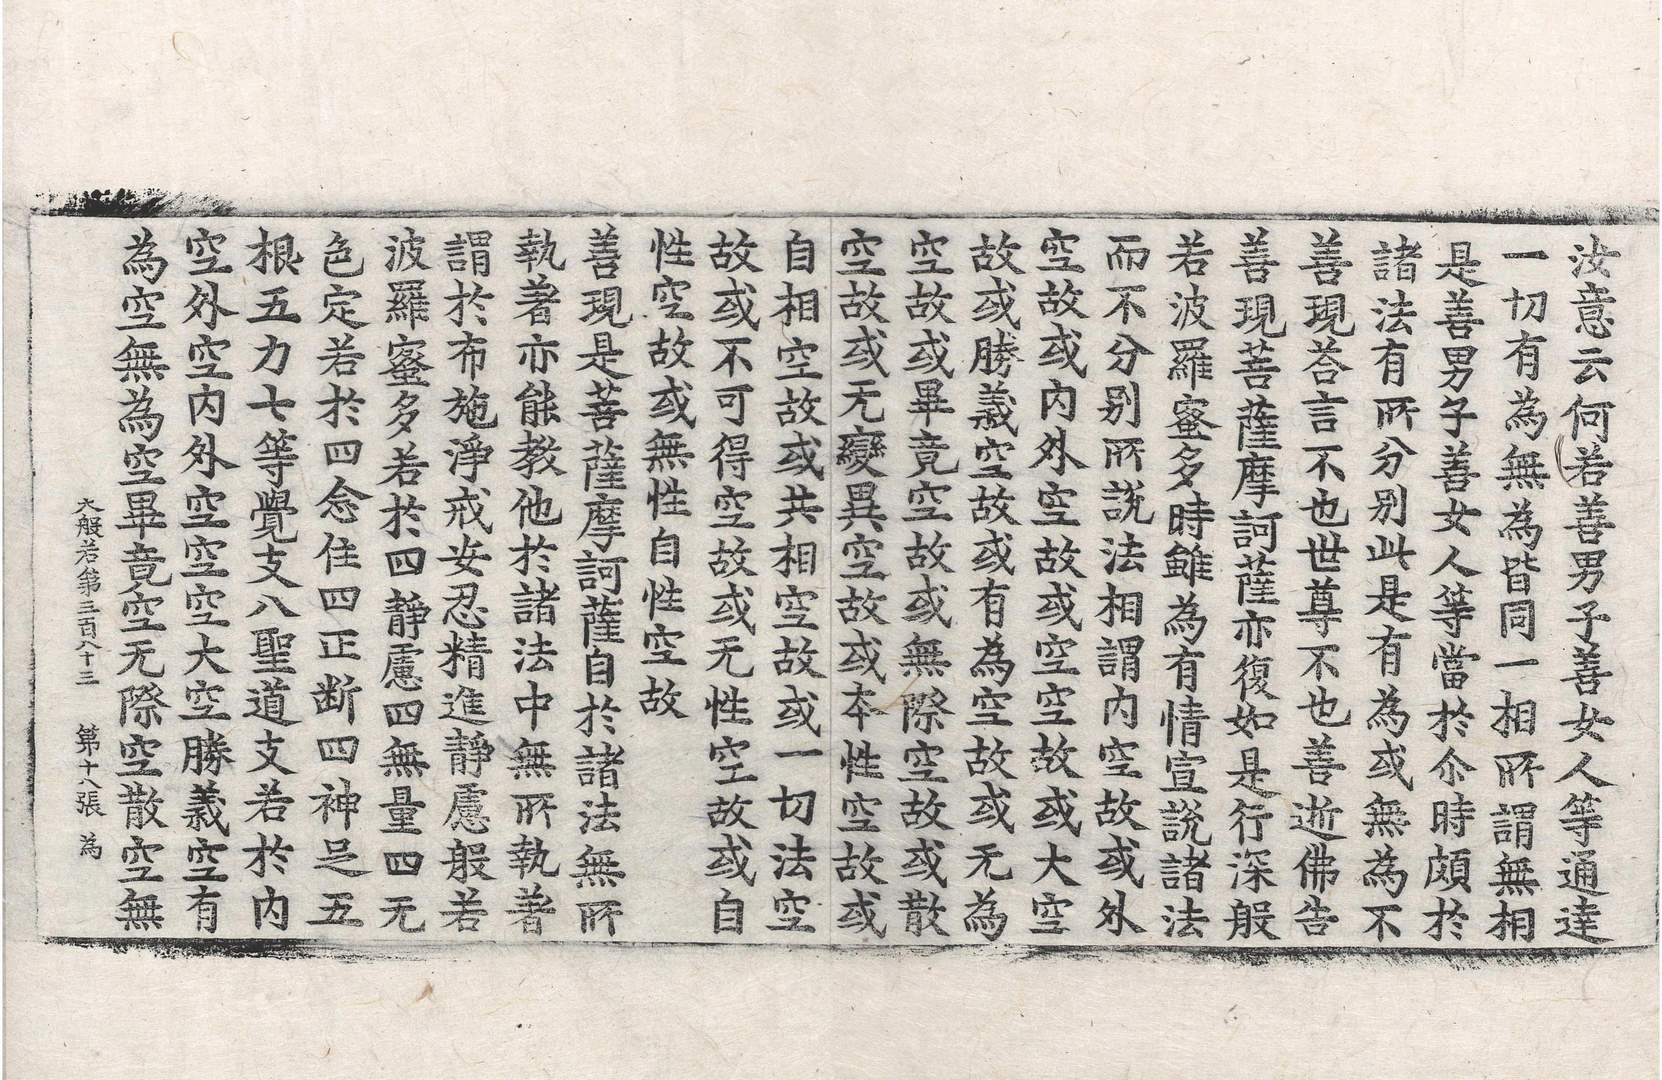 汝意云何若善男子善女人等通達
一切有為無為皆同一相所謂無相
是善男子善女人等當於尒時頗於
諸法有所分别此是有為或無為不
善現荅言不也世尊不也善逝佛告
善現菩薩摩訶薩亦復如是行深般
若波羅蜜多時雖為有情宣說諸法
而不分别所說法相謂内空故或外
空故或内外空故或空空故或大空
故或勝義空故或有為空故或无為
空故或畢竟空故或無際空故或散
空故或无變異空故或本性空故或
自相空故或共相空故或一切法空
故或不可得空故或无性空故或自
性空故或無性自性空故
善現是菩薩摩訶薩自於諸法無所
執著亦能教他於諸法中無所執著
謂於布施淨戒安忍精進靜慮般若
波羅蜜多若於四靜慮四無量四无
色定若於四念住四正断四神足五
根五力七等覺支八聖道支若於内
空外空内外空空空大空勝義空有
為空無為空畢竟空无際空散空無
大般若第三百八十三 第十八張 為